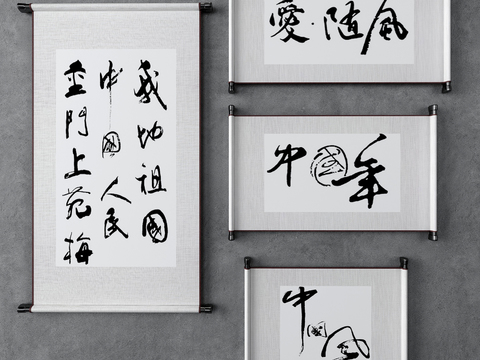 我的祖國
中國人民
門上苑梅
愛·随風
中国年
中國風